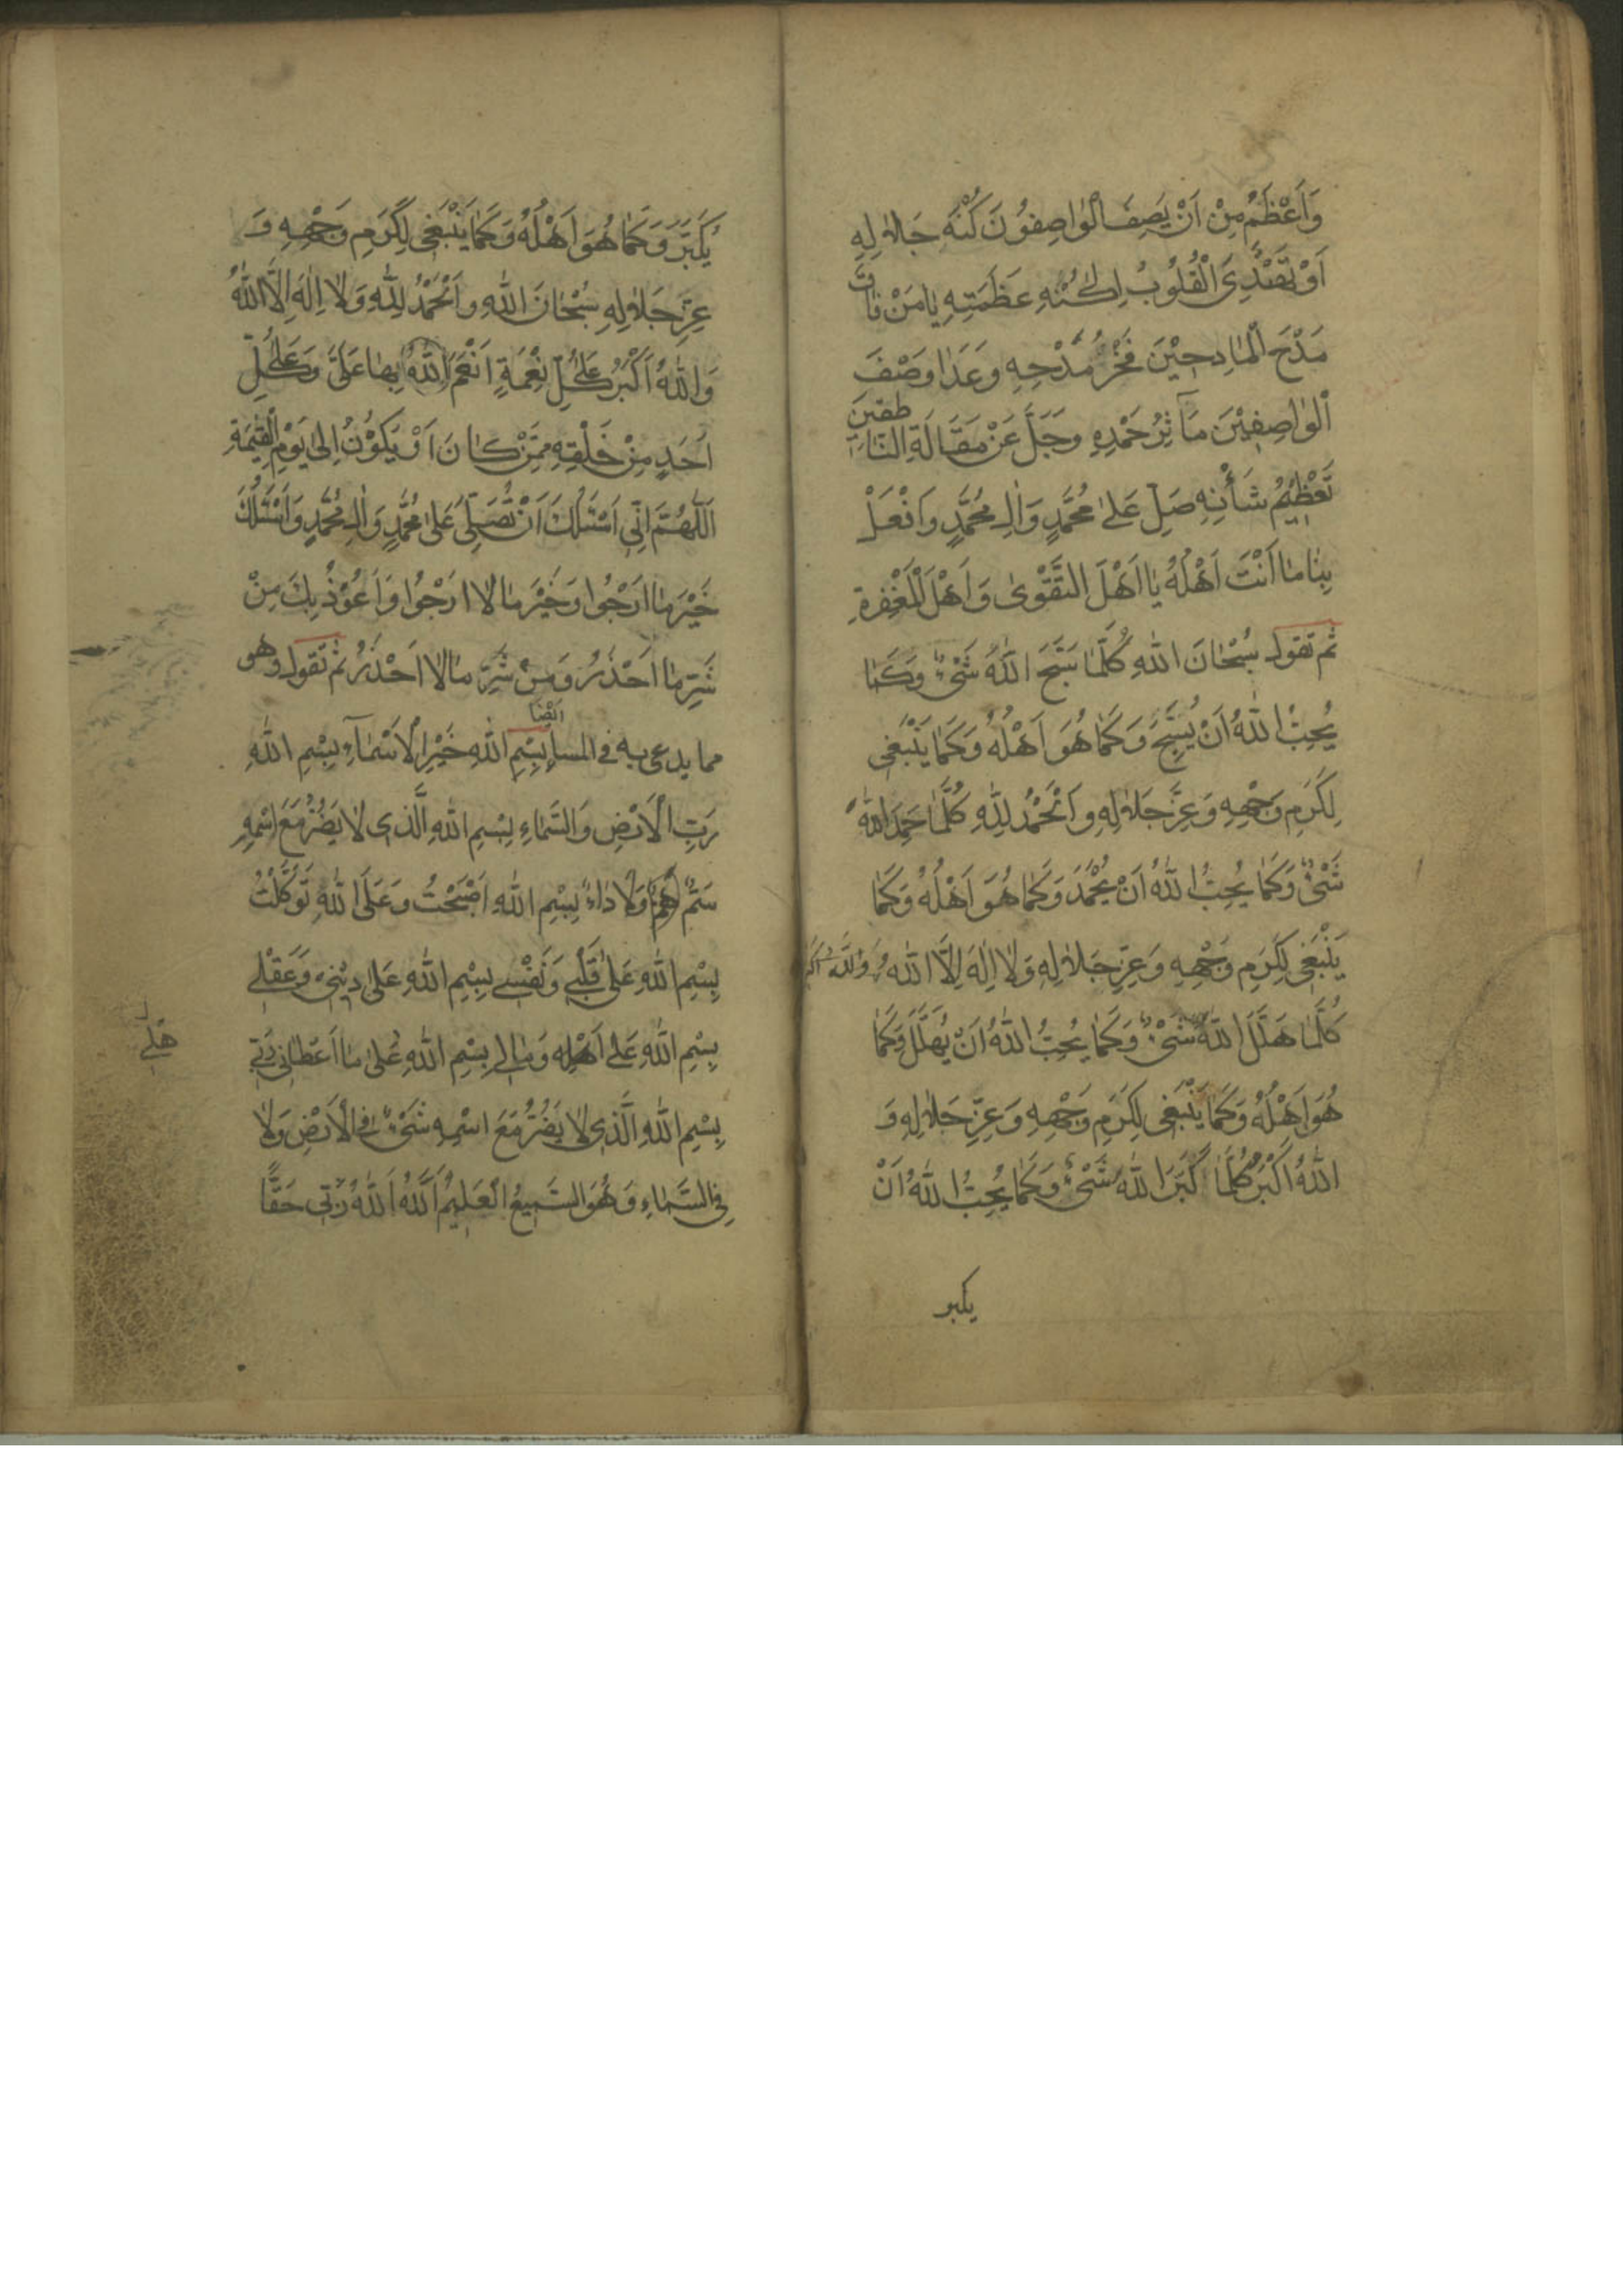 وَاَعْظَمُ مِنْ اَنْ يَصِفَ الْوٰاصِفُونَ كُنْهَ جَلاٰلِهِ
اَوْ تَهْتَدِىَ الْقُلُوبُ لِكُنْهِ عَظَمَتِهِ يٰا مَنْ فٰاقَ
مَدْحَ الْمٰادِحِيْنَ فَخْرُ مَدْحِهِ وَعَدٰا وَصْفَ
الْوٰاصِفِيْنَ مَآثِرُ حَمْدِهِ وَجَلَّ عَنْ مَقَالَةِ النّٰاطِقِيْنَ
تَعْظِيْمُ شَأْنِهِ صَلِّ عَلىٰ مُحَمَّدٍ وَاٰلِ مُحَمَّدٍ وَافْعَلْ
بِنٰا مٰا اَنْتَ اَهْلُهُ يٰا اَهْلَ التَّقْوىٰ وَاَهْلَ الْمَغْفِرَةِ
ثم تقول سُبْحٰانَ اللهِ كُلَّمٰا سَبَّحَ اللهَ شَىْءٌ وَكَمٰا
يُحِبُّ اللهُ اَنْ يُسَبَّحَ وَكَمٰا هُوَ اَهْلُهُ وَكَمٰا يَنْبَغى
لِكَرَمِ وَجْهِهِ وَعِزِّ جَلاٰلِهِ وَالْحَمْدُ لِلّٰهِ كُلَّمٰا حَمِدَ اللهَ
شَىْءٌ وَكَمٰا يُحِبُّ اللهُ اَنْ يُحْمَدَ وَكَمٰا هُوَ اَهْلُهُ وَكَمٰا
يَنْبَغى لِكَرَمِ وَجْهِهِ وَعِزِّ جَلاٰلِهِ وَلاٰ اِلٰهَ اِلاَّ اللهُ وَاللهُ اكبر
كُلَّمٰا هَلَّلَ اللهَ شَىْءٌ وَكَمٰا يُحِبُّ اللهُ اَنْ يُهَلَّلَ وَكَمٰا
هُوَ اَهْلُهُ وَكَمٰا يَنْبَغى لِكَرَمِ وَجْهِهِ وَعِزِّ جَلاٰلِهِ وَ
اللهُ اَكْبَرُ كُلَّمٰا كَبَّرَ اللهَ شَىْءٌ وَكَمٰا يُحِبُّ اللهُ اَنْ
يكبر
يُكَبَّرَ وَكَمٰا هُوَ اَهْلُهُ وَكَمٰا يَنْبَغى لِكَرَمِ وَجْهِهِ وَ
عِزِّ جَلاٰلِهِ سُبْحٰانَ اللهِ وَالْحَمْدُ لِلّٰهِ وَلاٰ اِلٰهَ اِلاَّ اللهُ
وَاللهُ اَكْبَرُ عَلىٰ كُلِّ نِعْمَةٍ اَنْعَمَ اللهُ بِهٰا عَلَىَّ وَعَلىٰ كُلِّ
اَحَدٍ مِنْ خَلْقِهِ مِمَّنْ كٰانَ اَوْ يَكُوْنُ اِلىٰ يَوْمِ الْقِيٰمَةِ
اَللّٰهُمَّ اِنّى اَسْئَلُكَ اَنْ تُصَلِّىَ عَلىٰ مُحَمَّدٍ وَاٰلِ مُحَمَّدٍ وَاَسْئَلُكَ
خَيْرَ مٰا اَرْجُوا وَخَيْرَ مٰا لاٰ اَرْجُوا وَاَعُوْذُ بِكَ مِنْ
شَرِّ مٰا اَحْذَرُ وَمِنْ شَرِّ مٰا لاٰ اَحْذَرُ ثم تقول وهو
ايضا
مما يدعى به فى المساء بِسْمِ اللهِ خَيْرِ الْاَسْمٰآءِ بِسْمِ اللهِ
رَبِّ الْاَرْضِ وَالسَّمٰاءِ بِسْمِ اللهِ الَّذى لاٰ يَضُرُّ مَعَ اسْمِهِ
سَمٌّ وَلاٰ دٰاءٌ بِسْمِ اللهِ اَصْبَحْتُ وَعَلَى اللهِ تَوَكَّلْتُ
بِسْمِ اللهِ عَلىٰ قَلْبى وَنَفْسى بِسْمِ اللهِ عَلىٰ دِيْنى وَعَقْلى
بِسْمِ اللهِ عَلىٰ اَهْلى وَمٰالى بِسْمِ اللهِ عَلىٰ مٰا اَعْطٰانى رَبّى
بِسْمِ اللهِ الَّذى لاٰ يَضُرُّ مَعَ اسْمِهِ شَىْءٌ فِى الْاَرْضِ وَلاٰ
فِى السَّمٰاءِ وَهُوَ السَّميعُ الْعَليمُ اَللهُ اَللهُ رَبّى حَقًّا